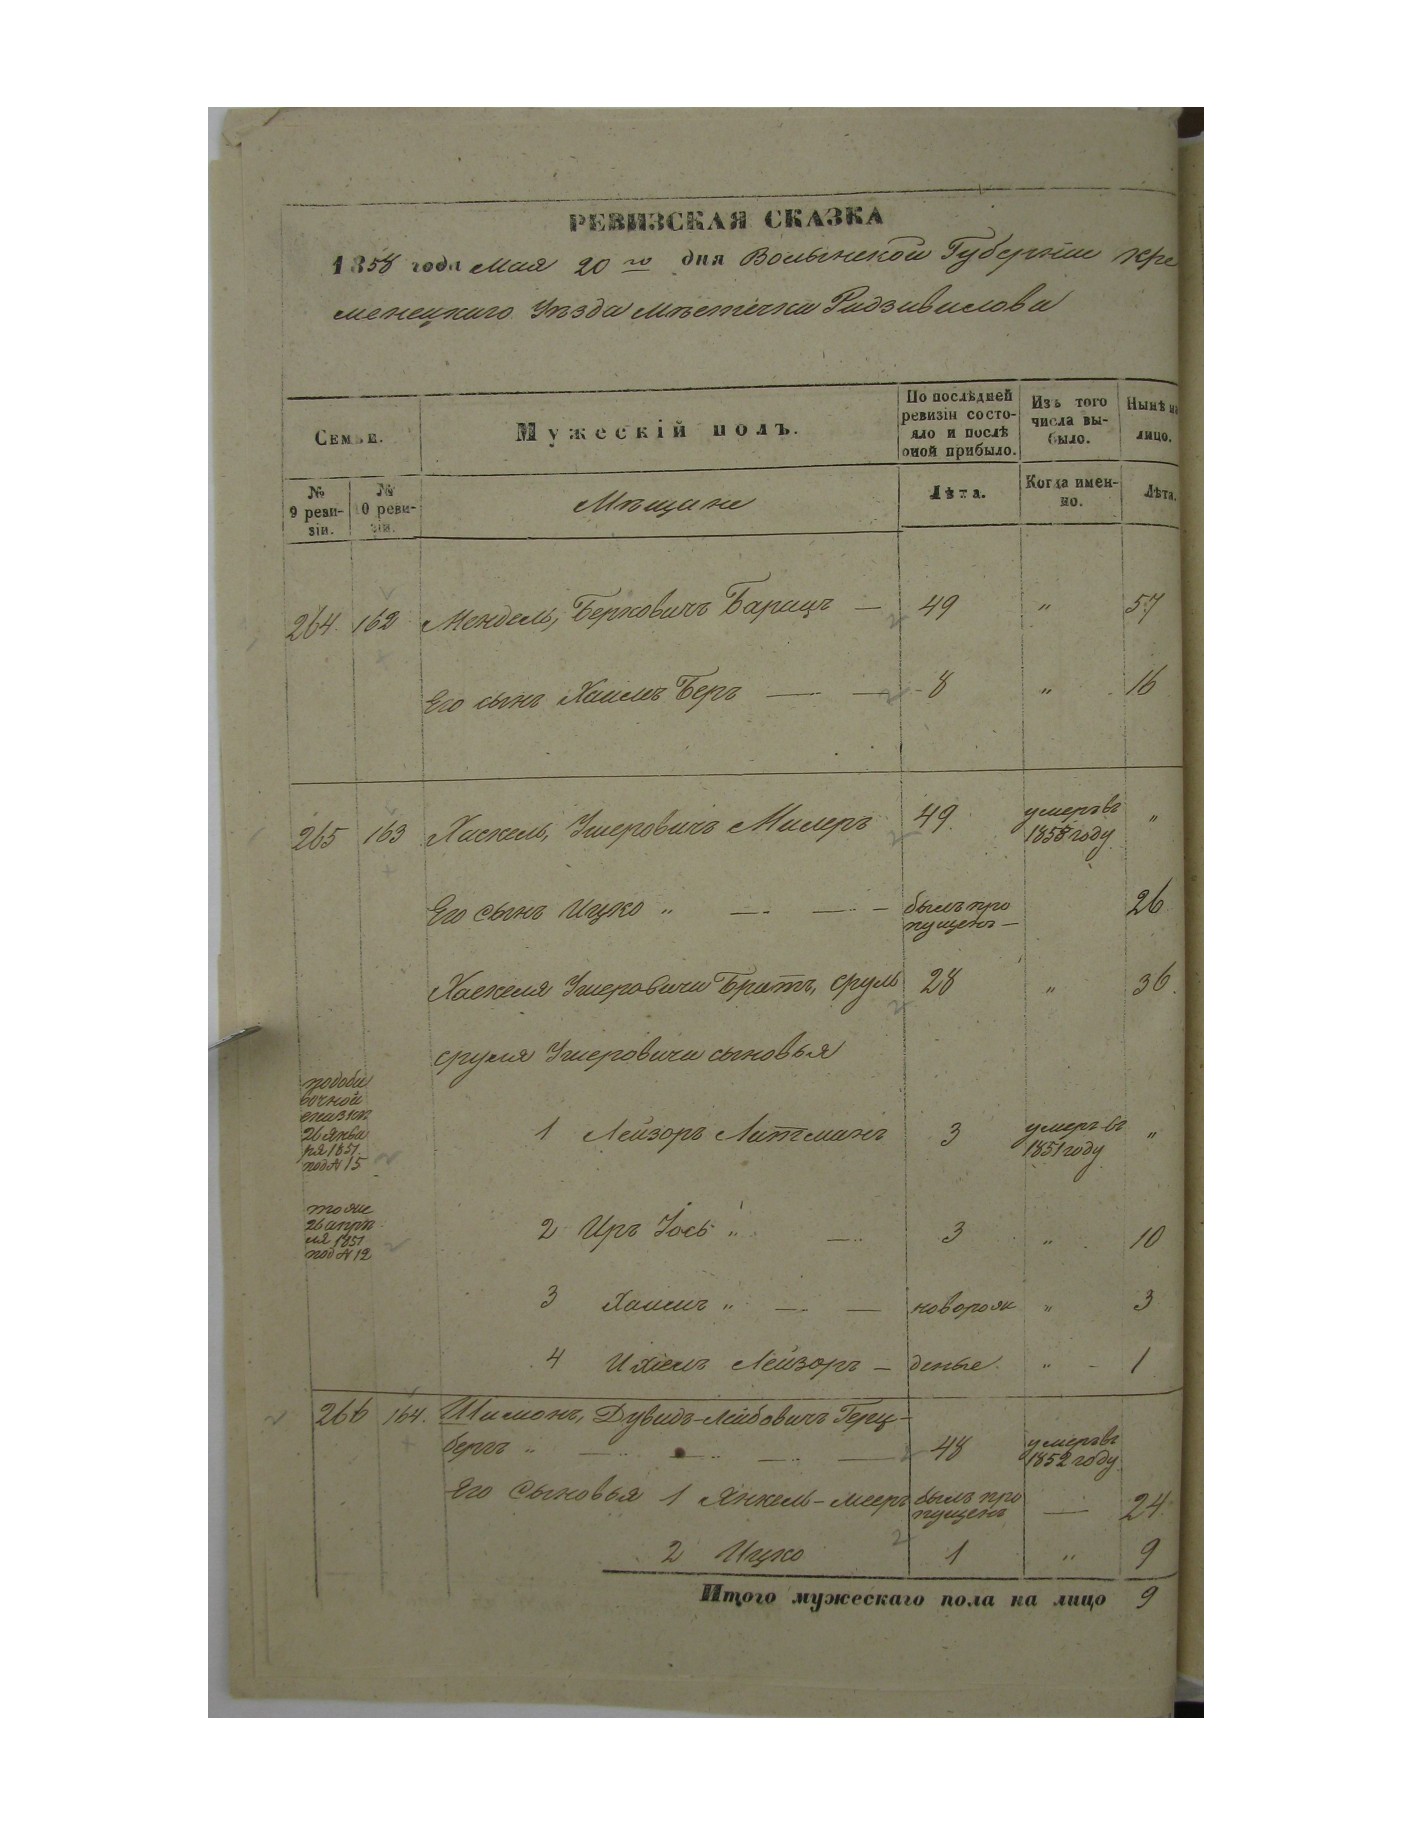 РЕВИЗСКАЯ СКАЗКА
1858 года Мая 20 го дня Волынской Губерніи Кре
менецкаго Уѣзда Мѣстечка Радзивилова
Семьи.
Мужескій полъ.
По послѣдней ревизіи состояло и послѣ оной прибыло.
Изъ того числа выбыло.
Нынѣ на лицо.
№ 9 ревизіи.
№ 10 ревизіи.
Мѣщане
Лѣта.
Когда именно.
Лѣта.
264 162 Мендель, Берковичъ Барацъ — 49 " 57
Его сынъ Хаимъ Беръ — — 8 " 16
265 163 Хаскель, Ушеровичъ Милеръ 49 умеръ въ 1858 году "
Его сынъ Ицко " — — — былъ пропущенъ — 26
Хаскеля Ушеровича Братъ, Сруль 28 " 36
Сруля Ушеровича сыновья
по доба
вочной
сказкѣ
26 янва
ря 1851
под № 15
1 Лейзоръ Литманъ 3 умеръ въ 1851 году "
тоже
26 апрѣ
ля 1851
под № 12
2 Иръ Іось " — 3 " 10
3 Хаимъ " — — новорож " 3
4 Ихіелъ Лейзоръ — деные " - 1
266 164. Шимонъ, Дувидъ-Лейбовичъ Герц-
бергъ " — — — — 48 умеръ въ 1852 году
Его Сыновья 1 Янкель-Мееръ былъ пропущенъ — 24
2 Ицко 1 " 9
Итого мужескаго пола на лицо 9